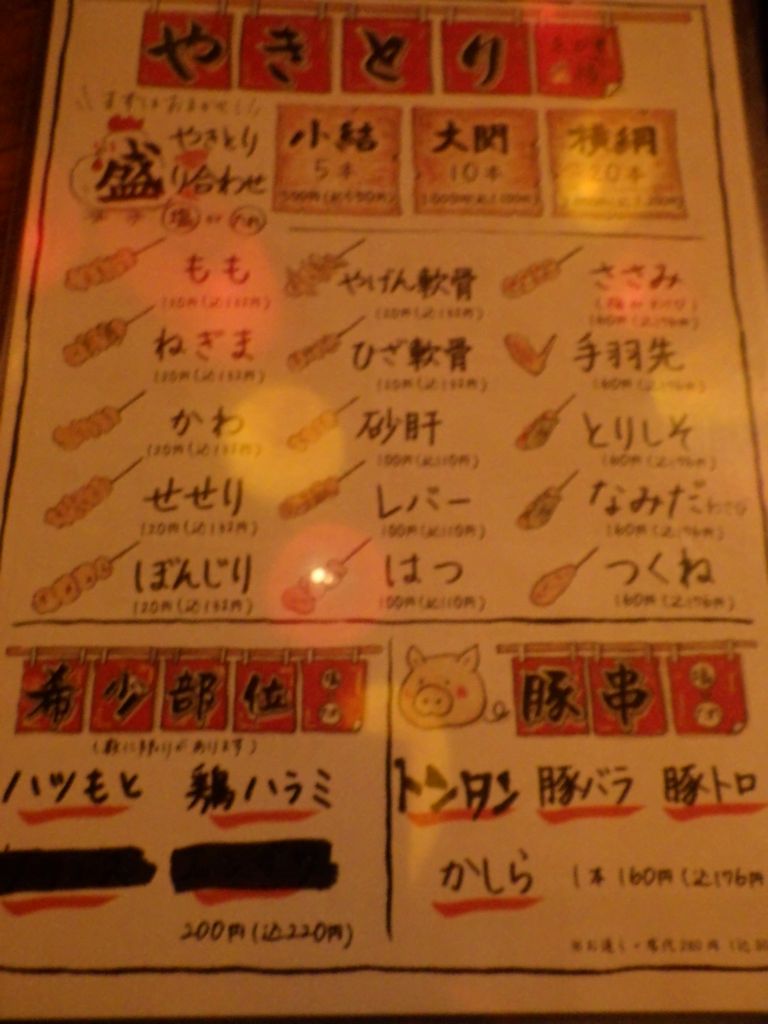 やきとり
まずはおまかせ!
やきとり
盛り合わせ
塩 or たれ
小結
5本
大関
10本
横綱
20本
もも
120円(込132円)
やげん軟骨
120円(込132円)
ささみ
160円(込176円)
ねぎま
120円(込132円)
ひざ軟骨
120円(込132円)
手羽先
160円(込176円)
かわ
120円(込132円)
砂肝
100円(込110円)
とりしそ
160円(込176円)
せせり
120円(込132円)
レバー
100円(込110円)
なみだ わさび
160円(込176円)
ぼんじり
120円(込132円)
はつ
100円(込110円)
つくね
160円(込176円)
希少部位
(数に限りがあります)
ハツもと 鶏ハラミ
200円(込220円)
豚串
トンタン 豚バラ 豚トロ
かしら 1本 160円(込176円
※お通し・席代